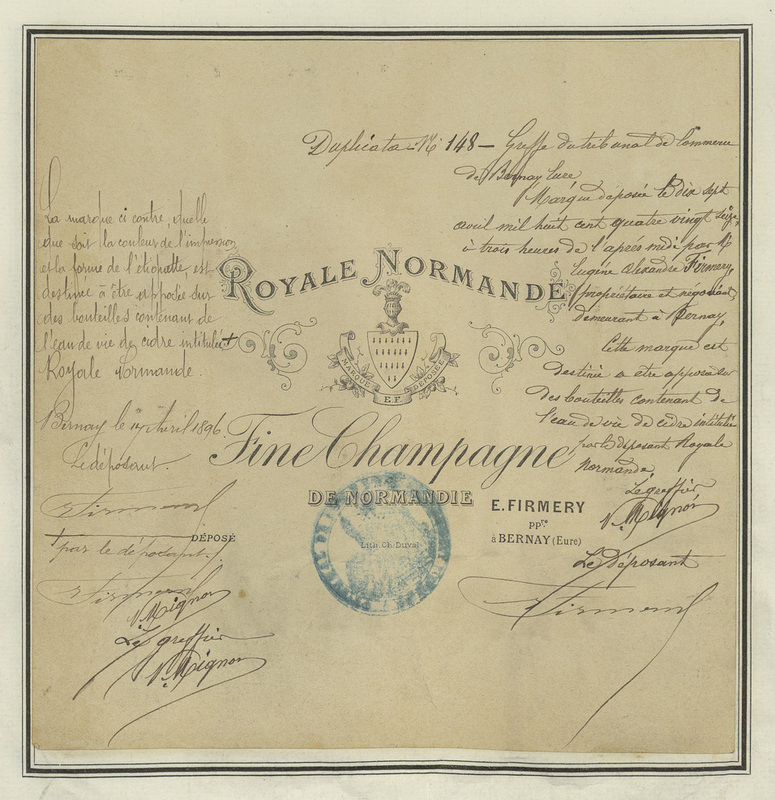 Duplicata N° 148 — Greffe du tribunal de Commerce
de Bernay Eure
Marque déposée le dix sept
avril mil huit cent quatre vingt seize,
à trois heures de l'apres midi par Mr
Eugène Alexandre Firmery,
propriétaire et négociant,
demeurant à Bernay,
Cette marque est
destinée a etre apposée sur
des bouteilles contenant de
l'eau de vie de cidre intitulée
par le déposant Royale
Normande,
Le greffier
V. Mignon
Le déposant
Firmery
La marque ci contre, quelle
que soit la couleur de l'impression
et la forme de l'étiquette, est
destinée à être apposée sur
des bouteilles contenant de
l'eau de vie de cidre intitulée +
Royale Normande.
Bernay le 17 Avril 1896.
Le déposant.
Firmery
+ par le déposant.
Firmery
V. Mignon
Le greffier
V. Mignon
ROYALE NORMANDE
MARQUE DÉPOSÉE
E.F.
Fine Champagne
DE NORMANDIE
E. FIRMERY
PPre
à BERNAY (Eure)
DÉPOSÉ
Lith. Ch. Duval